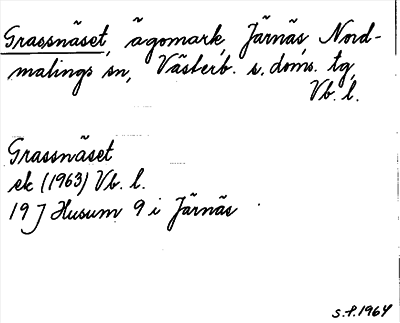 Grassnäset, ägomark, Järnäs, Nord-
malings sn, Västerb. s. doms. tg,
Vb. l.
Grassnäset
ek (1963) Vb. l.
19 J Husum 9 i Järnäs
S.F. 1964